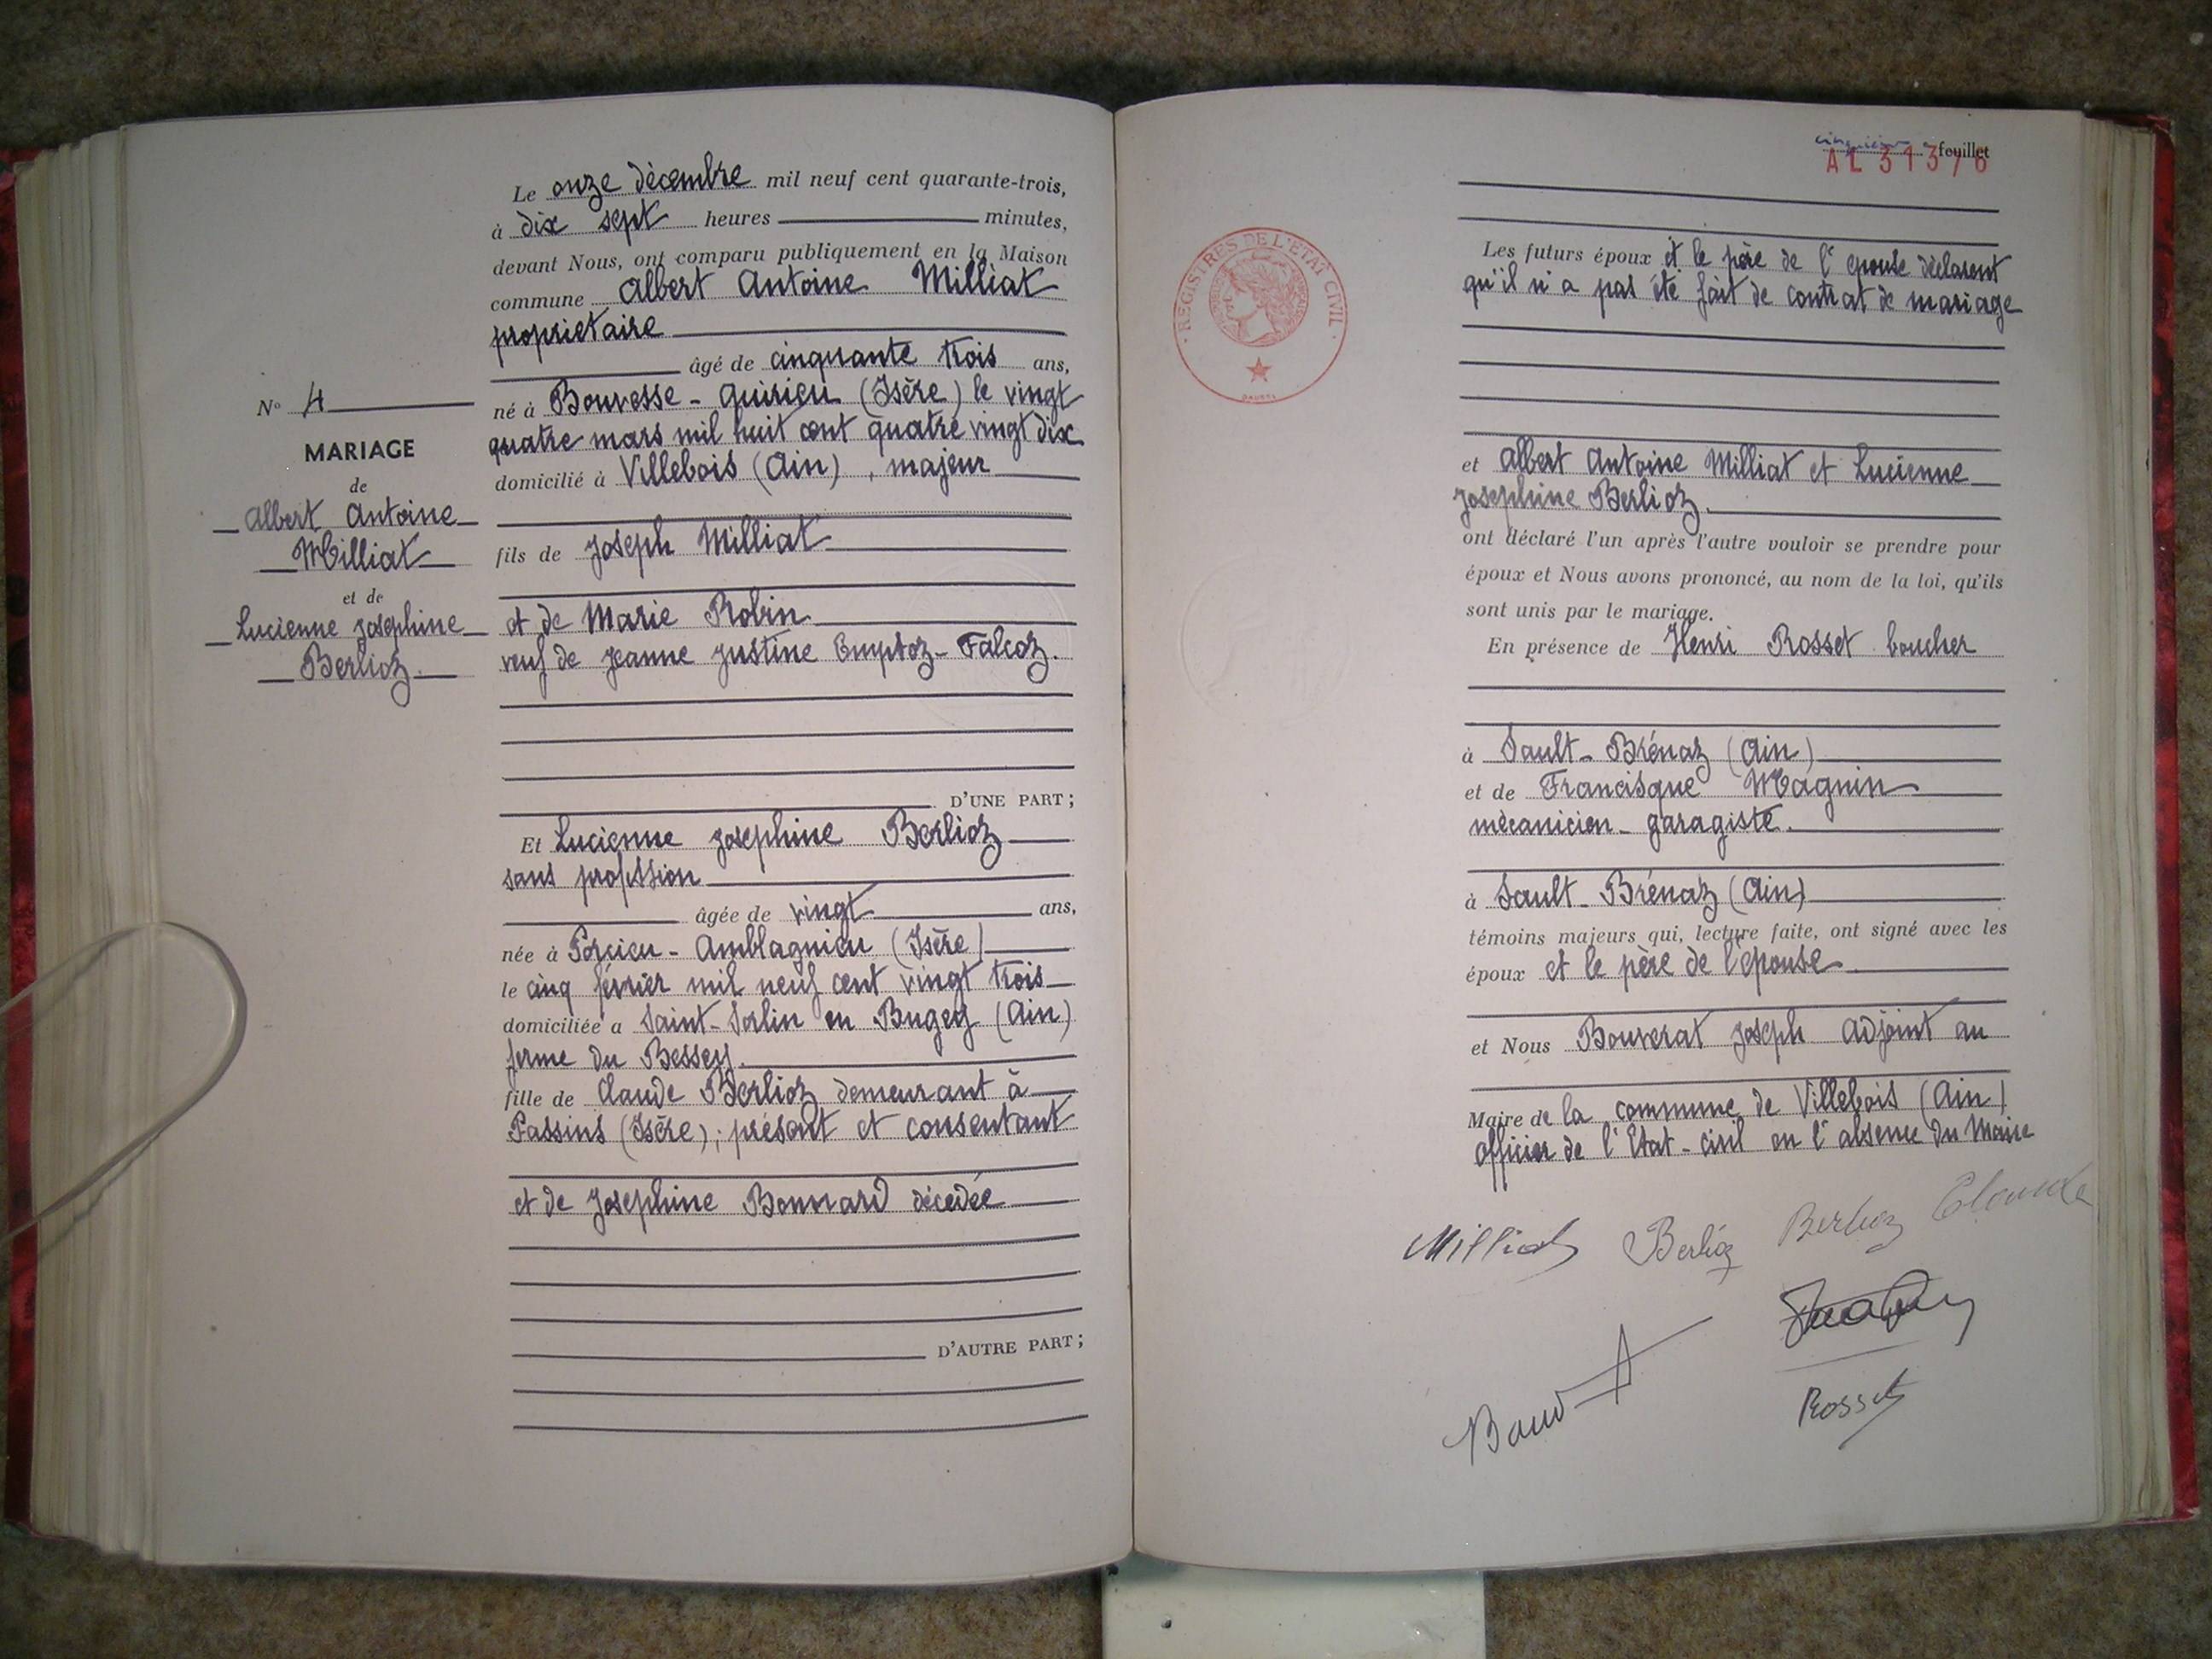 Le onze décembre mil neuf cent quarante-trois,
à dix sept heures minutes,
devant Nous, ont comparu publiquement en la Maison
commune Albert Antoine Milliat
propriétaire
âgé de cinquante trois ans,
né à Bouvesse - Quirieu (Isère) le vingt
quatre mars mil huit cent quatre vingt dix
domicilié à Villebois (Ain), majeur
fils de Joseph Milliat
et de Marie Robin
veuf de Jeanne Justine Emptoz-Falcoz.
D'UNE PART;
Et Lucienne Joséphine Berlioz
sans profession
âgée de vingt ans,
née à Porcieu - Amblagnieu (Isère)
le cinq février mil neuf cent vingt trois
domiciliée à Saint-Sorlin en Bugey (Ain)
ferme du Bessey.
fille de Claude Berlioz demeurant à
Passins (Isère); présent et consentant
et de Joséphine Bonnard décédée
D'AUTRE PART;
N° 4
MARIAGE
de
Albert Antoine
Milliat
et de
Lucienne Joséphine
Berlioz.
cinquième feuillet
AL 31376
REGISTRES DE L'ÉTAT CIVIL
Les futurs époux et le père de l'épouse déclarent
qu'il n'a pas été fait de contrat de mariage
et Albert Antoine Milliat et Lucienne
Joséphine Berlioz.
ont déclaré l'un après l'autre vouloir se prendre pour
époux et Nous avons prononcé, au nom de la loi, qu'ils
sont unis par le mariage.
En présence de Henri Rosset boucher
à Sault-Brénaz (Ain)
et de Francisque Magnin
mécanicien-garagiste.
à Sault-Brénaz (Ain)
témoins majeurs qui, lecture faite, ont signé avec les
époux et le père de l'épouse
et Nous Bouverat Joseph Adjoint au
Maire de la commune de Villebois (Ain)
officier de l'Etat-civil en l'absence du Maire
Milliat Berlioz Berlioz Claude
Rosset